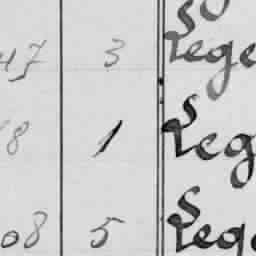 47 3 Lege
8 1 Leg
08 5 Lege